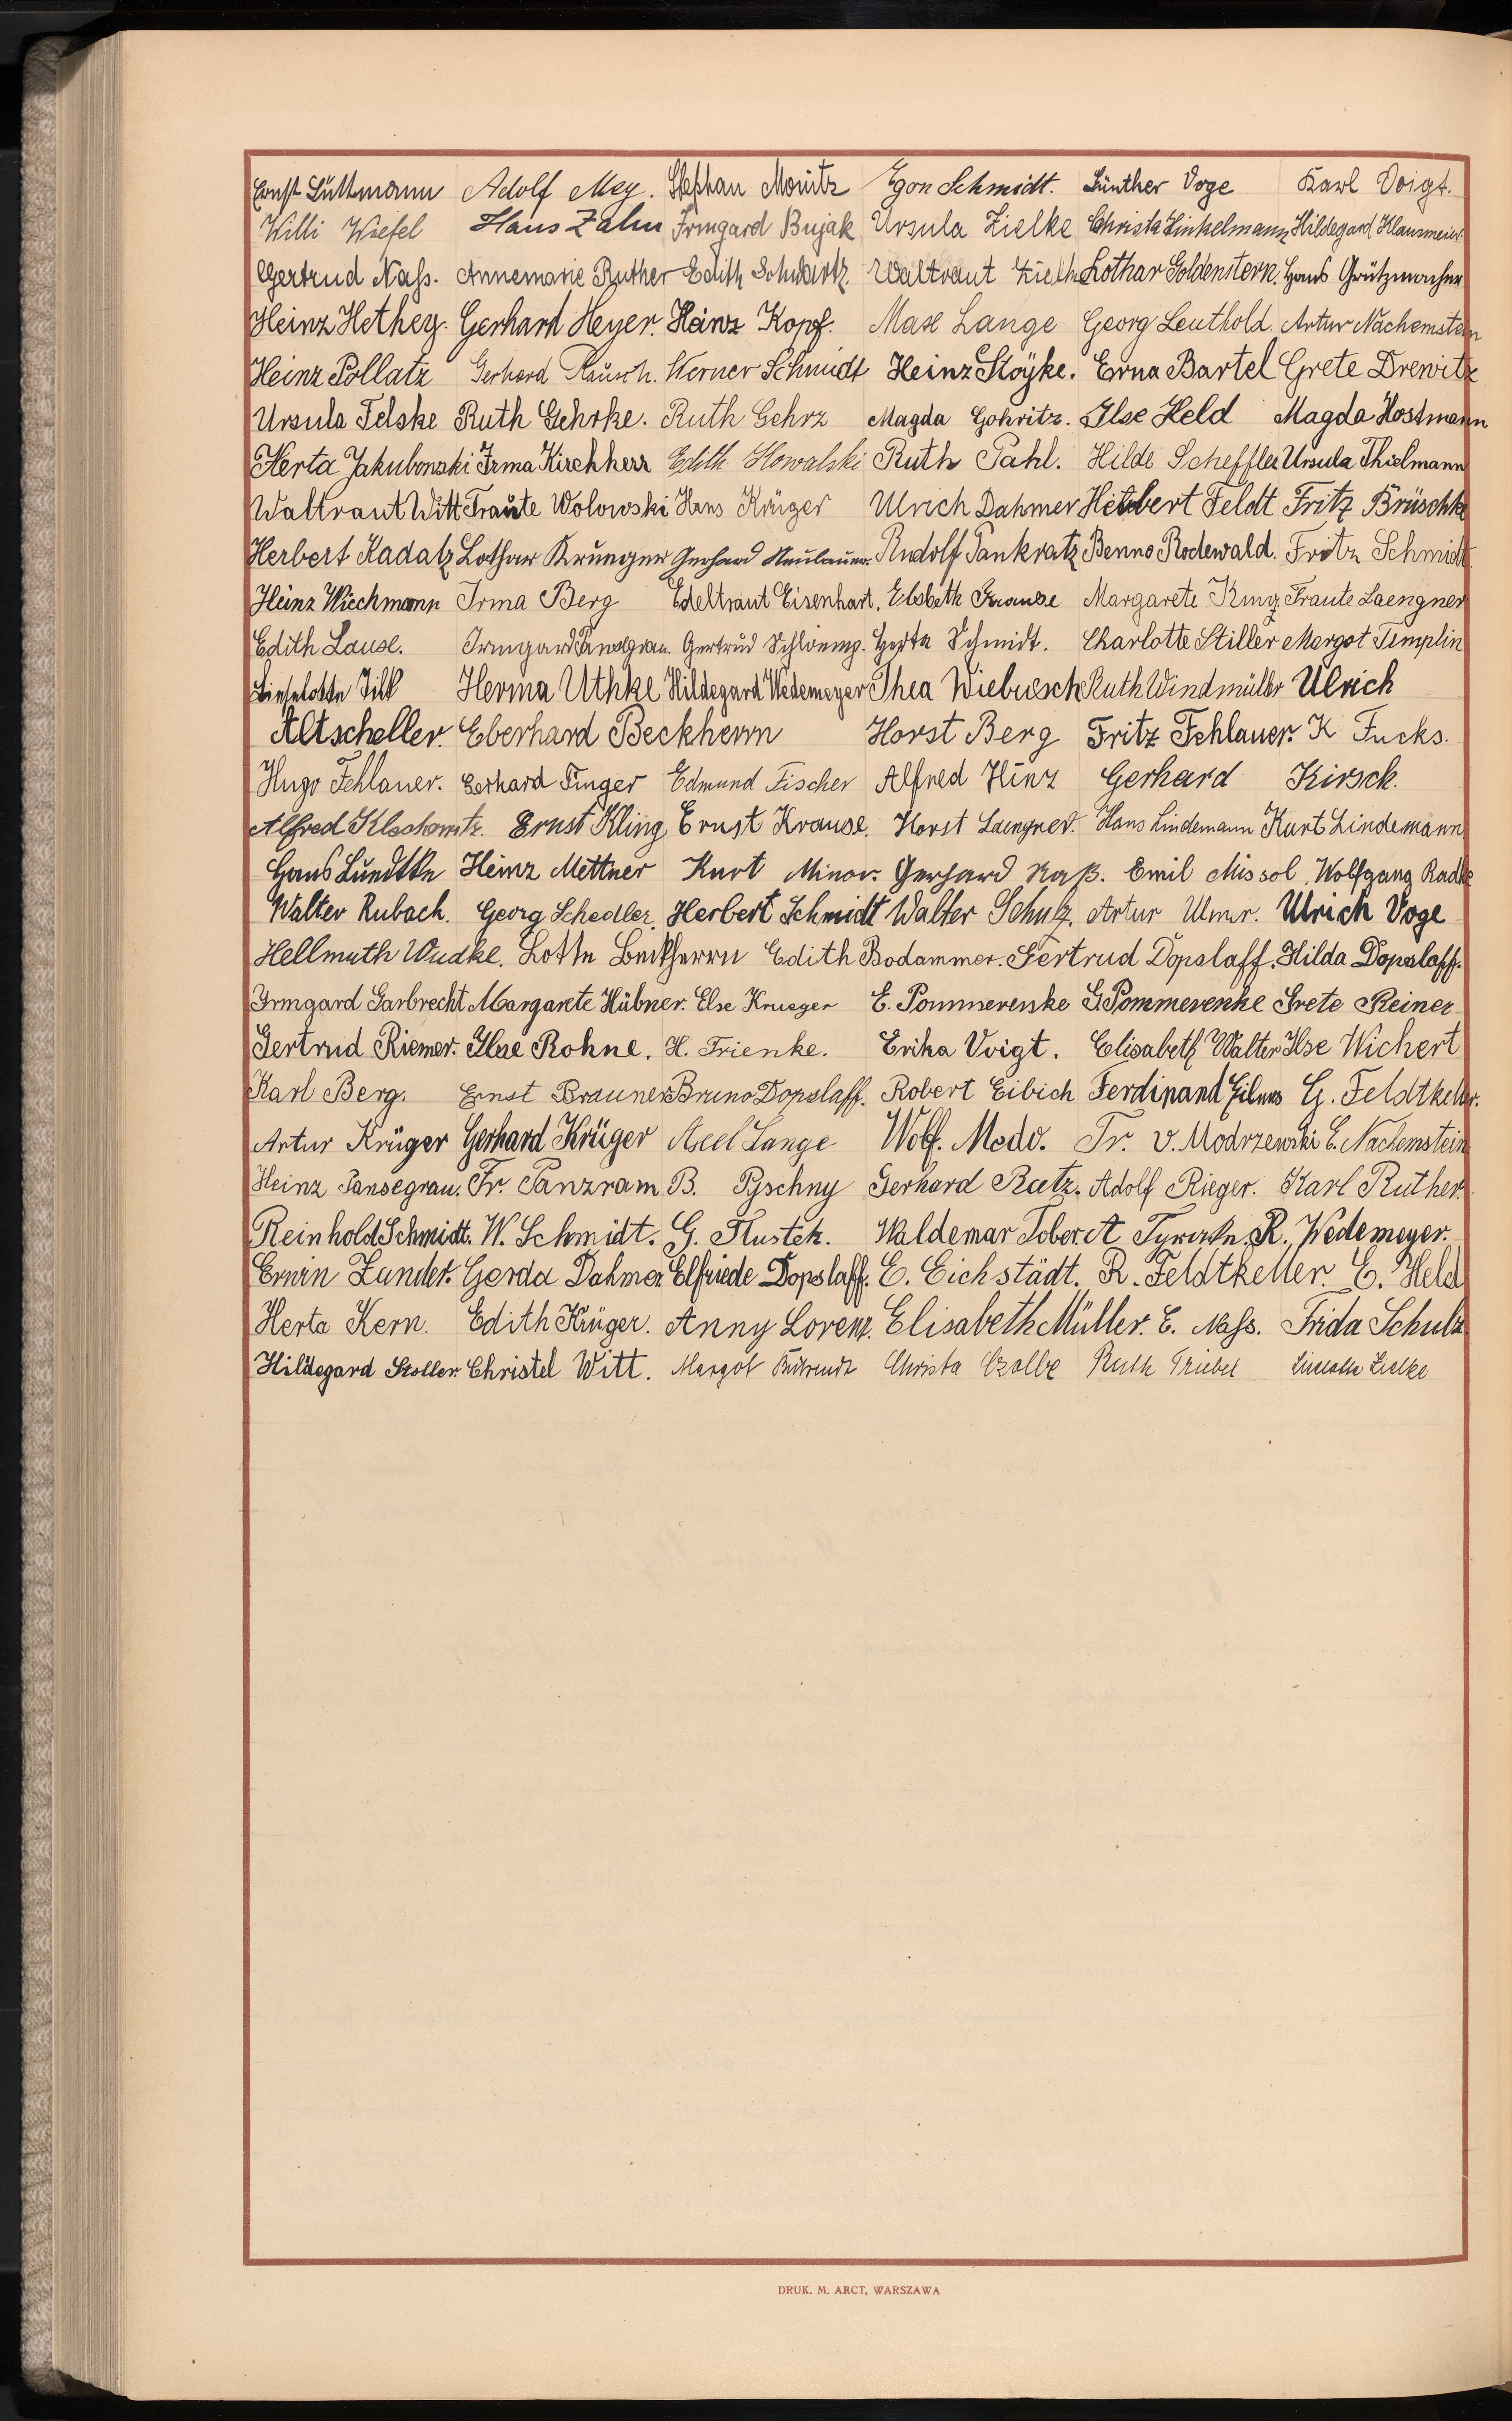 Ernst Lüttmann Adolf Mey. Stephan Monitz Egon Schmidt. Günther Voge Karl Voigt.
Willi Wiefel Hans Zahn Irmgard Bujak Ursula Zielke Christa Finkelmann Hildegard Klausmeier
Gertrud Nass. Annemarie Ruther Edith Schwartz. Waltraut Lothar Goldenstern. Hans Grützmacher
Heinz Hethey. Gerhard Heyer. Heinz Kopf. Max Lange Georg Leuthold. Artur Nachemstein
Heinz Pollatz Gerhard Rausch. Werner Schmidt Heinz Stöyke. Erna Bartel Grete Drewitz
Ursula Felske Ruth Gehrke. Ruth Gehrz Magda Gohritz. Ilse Held Magda Hostmann
Herta Jakubowski Irma Kirchherr Edith Kowalski Ruth Pahl. Hilde Scheffler Ursula Thielmann
Waltraut Witt Traute Wolowski Hans Krüger Ulrich Dahmer Herbert Feldt Fritz Brüschke
Herbert Kadatz Lothar Krueger Gerhard Neubauer. Rudolf Pankratz Benno Rodewald. Fritz Schmidt
Heinz Wiechmann Irma Berg Edeltraut Eisenhart. Elsbeth Krause Margarete King Traute Laengner
Edith Lause. Irmgard Pansegrau. Gertrud Herta Schmidt. Charlotte Stiller Margot Templin
Lieselotte Tilk Herma Uthke Hildegard Wedemeyer Thea Wiebusch Ruth Windmüller Ulrich
Altscheller. Eberhard Beckherrn Horst Berg Fritz Fehlauer. K Fucks.
Hugo Fehlauer. Gerhard Finger Edmund Fischer Alfred Hinz Gerhard Kirsch.
Alfred Ernst Kling Ernst Krause. Horst Laengner. Hans Lindemann Kurt Lindemann
Hans Lündtke Heinz Mettner Kurt Minor. Gerhard Naß. Emil Missol. Wolfgang Radke
Walter Rubach. Georg Schedler. Herbert Schmidt Walter Schulz. Artur Ulmer. Ulrich Voge
Hellmuth Wudke. Lotte Beckherrn Edith Bodammer. Gertrud Dopslaff. Hilda Dopslaff.
Irmgard Garbrecht Margarete Hübner. Else Krueger E. Pommerenke G Pommerenke Grete Reiner
Gertrud Riemer. Ilse Rohne. H. Trienke. Erika Voigt. Elisabeth Walter Ilse Wichert
Karl Berg. Ernst Brauner Bruno Dopslaff. Robert Eibich Ferdinand G. Feldtkeller.
Artur Krüger Gerhard Krüger Axel Lange Wolf. Medo. Tr. v. Modrzewski E. Nachemstein
Heinz Pansegrau. Fr. Panzram B. Pyschny Gerhard Ratz. Adolf Rieger. Karl Ruther.
Reinhold Schmidt. W. Schmidt. G. Waldemar Tober. A R. Wedemeyer.
Erwin Zander. Gerda Dahmer Elfriede Dopslaff. E. Eichstädt. R. Feldtkeller. E. Held
Herta Kern. Edith Krüger. Anny Lorenz. Elisabeth Müller. E. Nass. Frida Schulz
Hildegard Stoller. Christel Witt. Margot Christa Czolbe Ruth Triebel Zielke
DRUK. M. ARCT, WARSZAWA